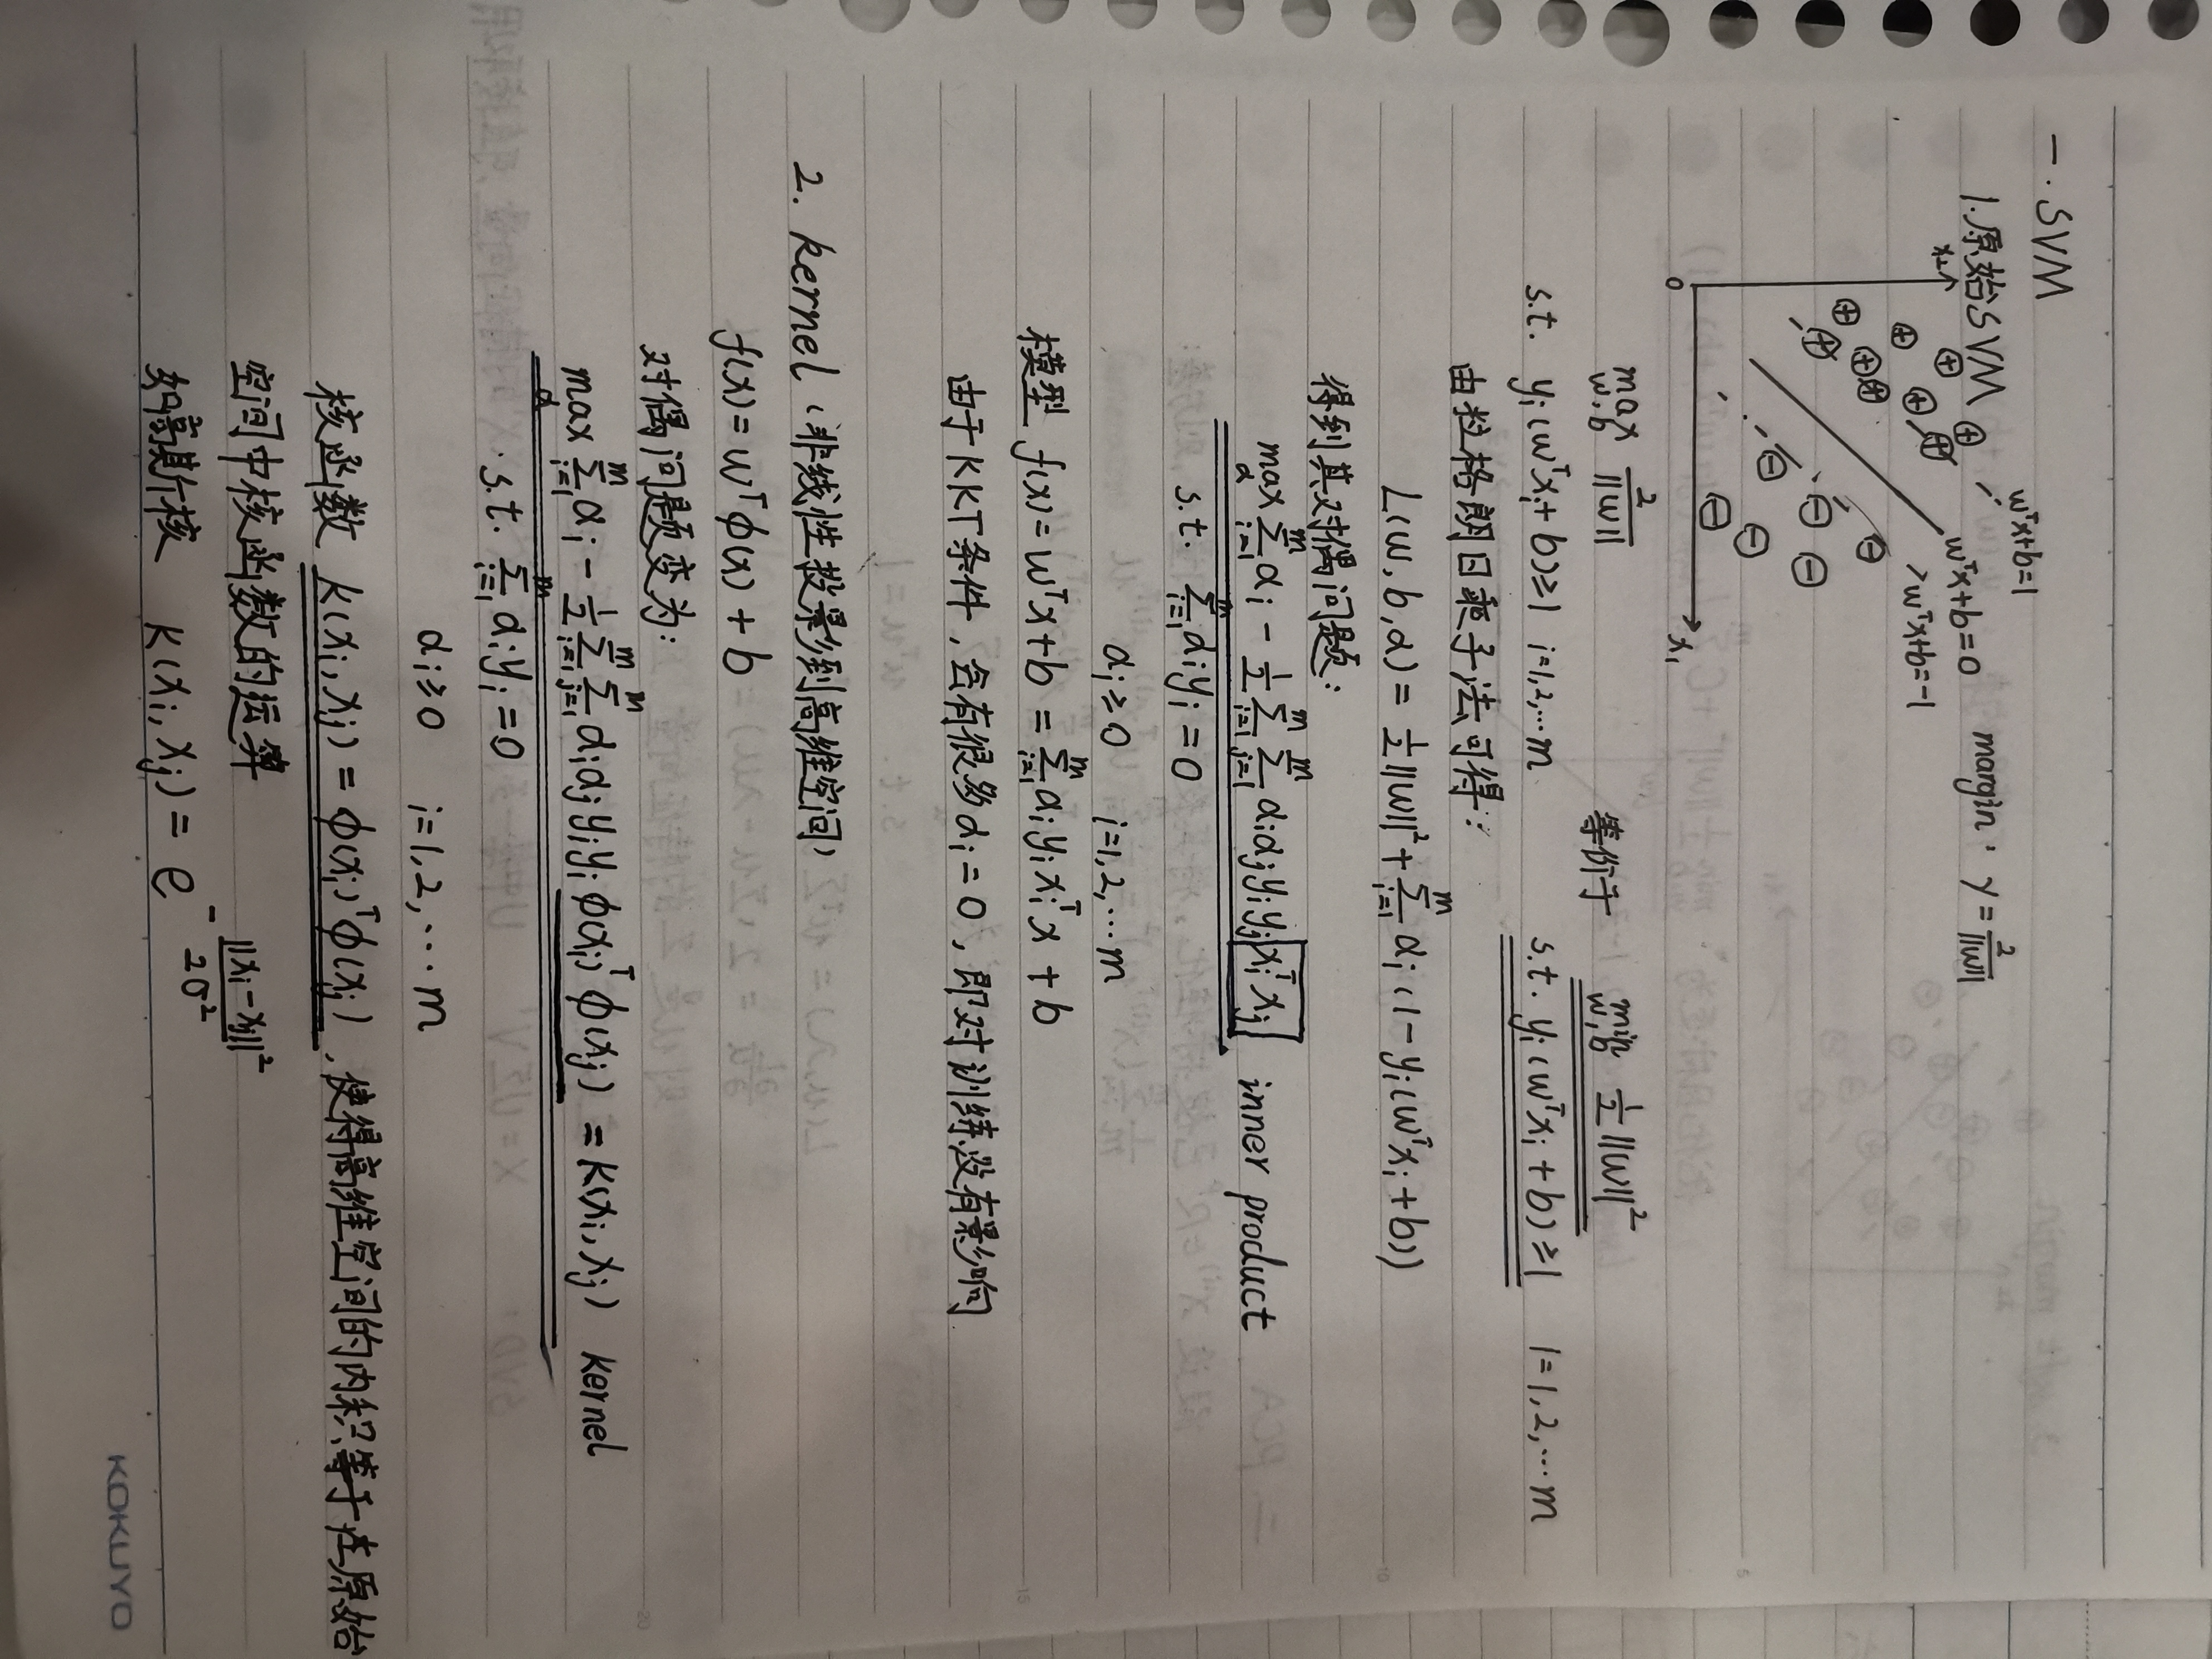 一. SVM
1. 原始SVM
wᵀx+b=1
margin: γ = 2/||w||
wᵀx+b=0
wᵀx+b=-1
x₂
⊕ ⊕ ⊕ ⊕ ⊕ ⊕ ⊕ ⊕ ⊕
⊖ ⊖ ⊖ ⊖ ⊖ ⊖
0 x₁
max_{w,b} 2/||w|| 等价于 min_{w,b} ½||w||²
s.t. yᵢ(wᵀxᵢ+b)≥1 i=1,2,…m s.t. yᵢ(wᵀxᵢ+b)≥1 i=1,2,…m
由拉格朗日乘子法可得:
L(w,b,α) = ½||w||² + Σ_{i=1}^{m} αᵢ(1-yᵢ(wᵀxᵢ+b))
得到其对偶问题:
max_α Σ_{i=1}^{m} αᵢ - ½ Σ_{i=1}^{m} Σ_{j=1}^{m} αᵢαⱼyᵢyⱼ xᵢᵀxⱼ inner product
s.t. Σ_{i=1}^{m} αᵢyᵢ = 0
αᵢ≥0 i=1,2,…m
模型 f(x)=wᵀx+b = Σ_{i=1}^{m} αᵢyᵢxᵢᵀx + b
由于KKT条件,会有很多αᵢ=0,即对训练没有影响
2. kernel (非线性投影到高维空间)
f(x)=wᵀφ(x)+b
对偶问题变为:
max_α Σ_{i=1}^{m} αᵢ - ½ Σ_{i=1}^{m} Σ_{j=1}^{m} αᵢαⱼyᵢyᵢ φ(xᵢ)ᵀφ(xⱼ) = K(xᵢ,xⱼ) kernel
s.t. Σ_{i=1}^{m} αᵢyᵢ=0
αᵢ≥0 i=1,2,…m
核函数 K(xᵢ,xⱼ) = φ(xᵢ)ᵀφ(xⱼ),使得高维空间的内积等于在原始
空间中核函数的运算
如高斯核 K(xᵢ,xⱼ) = e^{-||xᵢ-xⱼ||²/2σ²}
KOKUYO